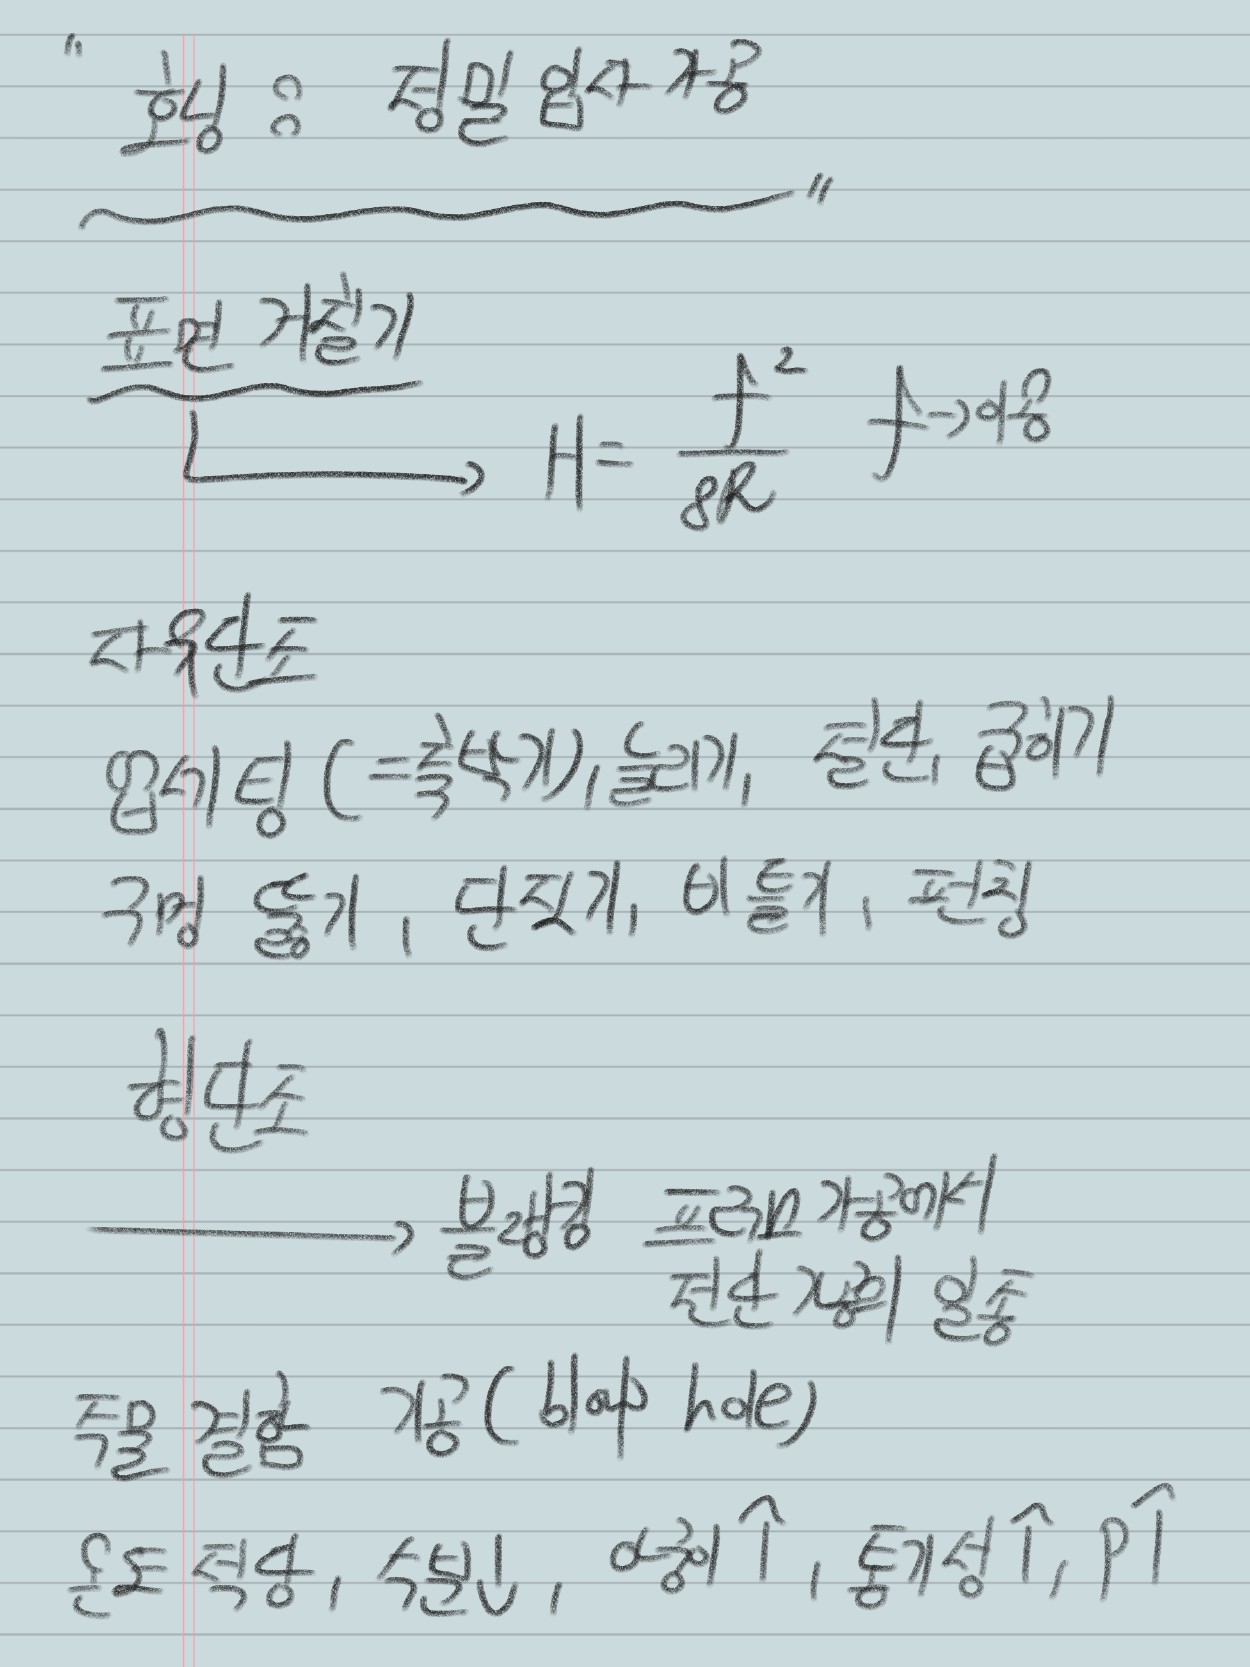 " 호닝 : 정밀 입자 가공 "
표면 거칠기
H = f²/8R  f → 이송
자유단조
업세팅 (=축박기), 늘리기, 절단, 굽히기
구멍 뚫기, 단짓기, 비틀기, 펀칭
형단조
→ 블랭킹 프레스 가공에서
전단 가공의 일종
주물 결함 기공 (blop hole)
온도 적당, 수분↓, 압탕↑, 통기성↑, P↑